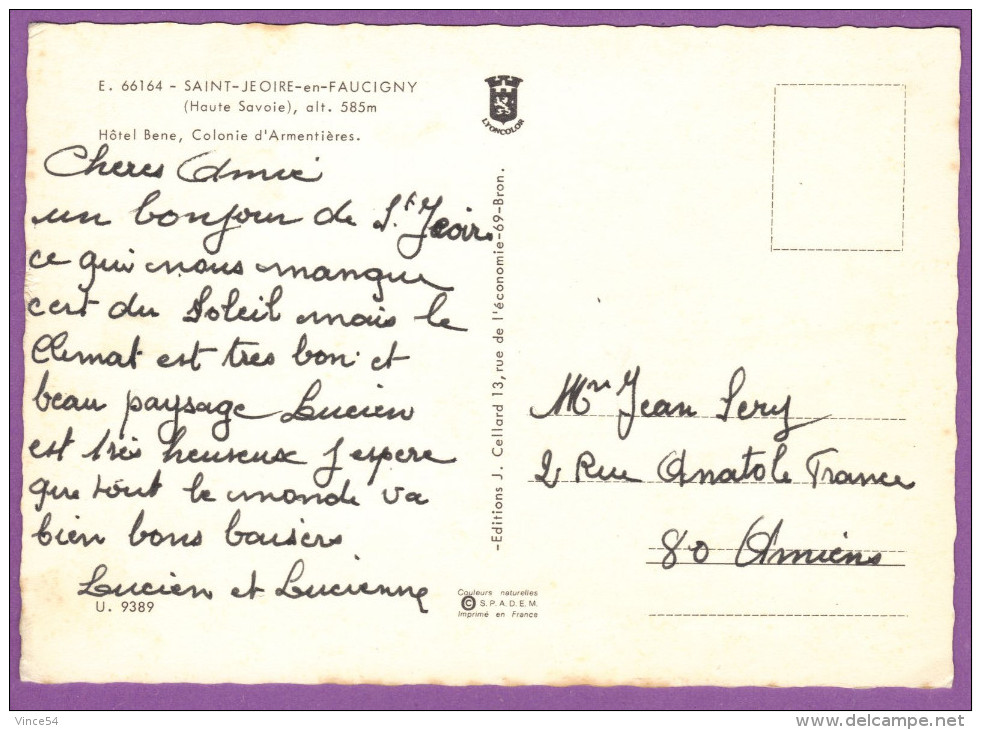 E. 66164 - SAINT-JEOIRE-en-FAUCIGNY
(Haute Savoie), alt. 585m
Hôtel Bene, Colonie d'Armentières.
Cheres Amie
un bonjour de St Jeoire
ce qui nous manque
cest du Soleil mais le
Climat est tres bon et
beau paysage Lucien
est très heureux J espere
que tout le monde va
bien bons baisers
Lucien et Lucienne
U. 9389
LYONCOLOR
-Editions J. Cellard 13, rue de l'économie-69-Bron.
Couleurs naturelles
© S.P.A.D.E.M.
Imprimé en France
Mr Jean Sery
2 Rue Anatole France
80 Amiens
Vince54
www.delcampe.net